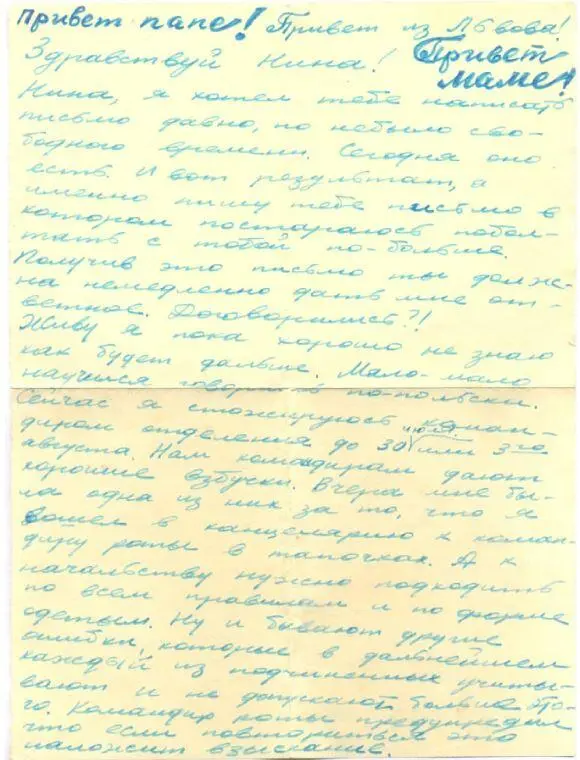 Привет папе! Привет из Львова!
Здравствуй Нина! Привет
маме!
Нина, я хотел тебе написать
письмо давно, но небыло сво-
бодного времени. Сегодня оно
есть. И вот результат, а
именно пишу тебе письмо в
котором постараюсь побол-
тать с тобой по-больше.
Получив это письмо ты долж-
на немедленно дать мне от-
ветное. Договорились?!
Живу я пока хорошо не знаю
как будет дальше. Мало-мало
научился говорить по-польски.
Сейчас я стожирукось коман-
диром отделения до 30 июля или 3го
августа. Нам командирам дают
хорошие взбучки. Вчера мне бы-
ла одна из них за то, что я
вошел в канцелярию к коман-
диру роты в тапочках. А к
начальству нужно подходить
по всем правилам и по форме
одетым. Ну и бывают другие
ошибки, которые в дальнейшем
каждый из подчиненных учиты-
вают и не допускают больше это-
го. Командир роты предупредил
что если повториться это
наложит взыскание.